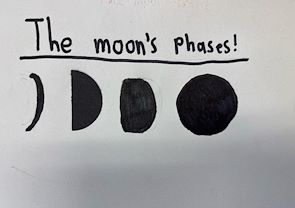 The moon's phases!